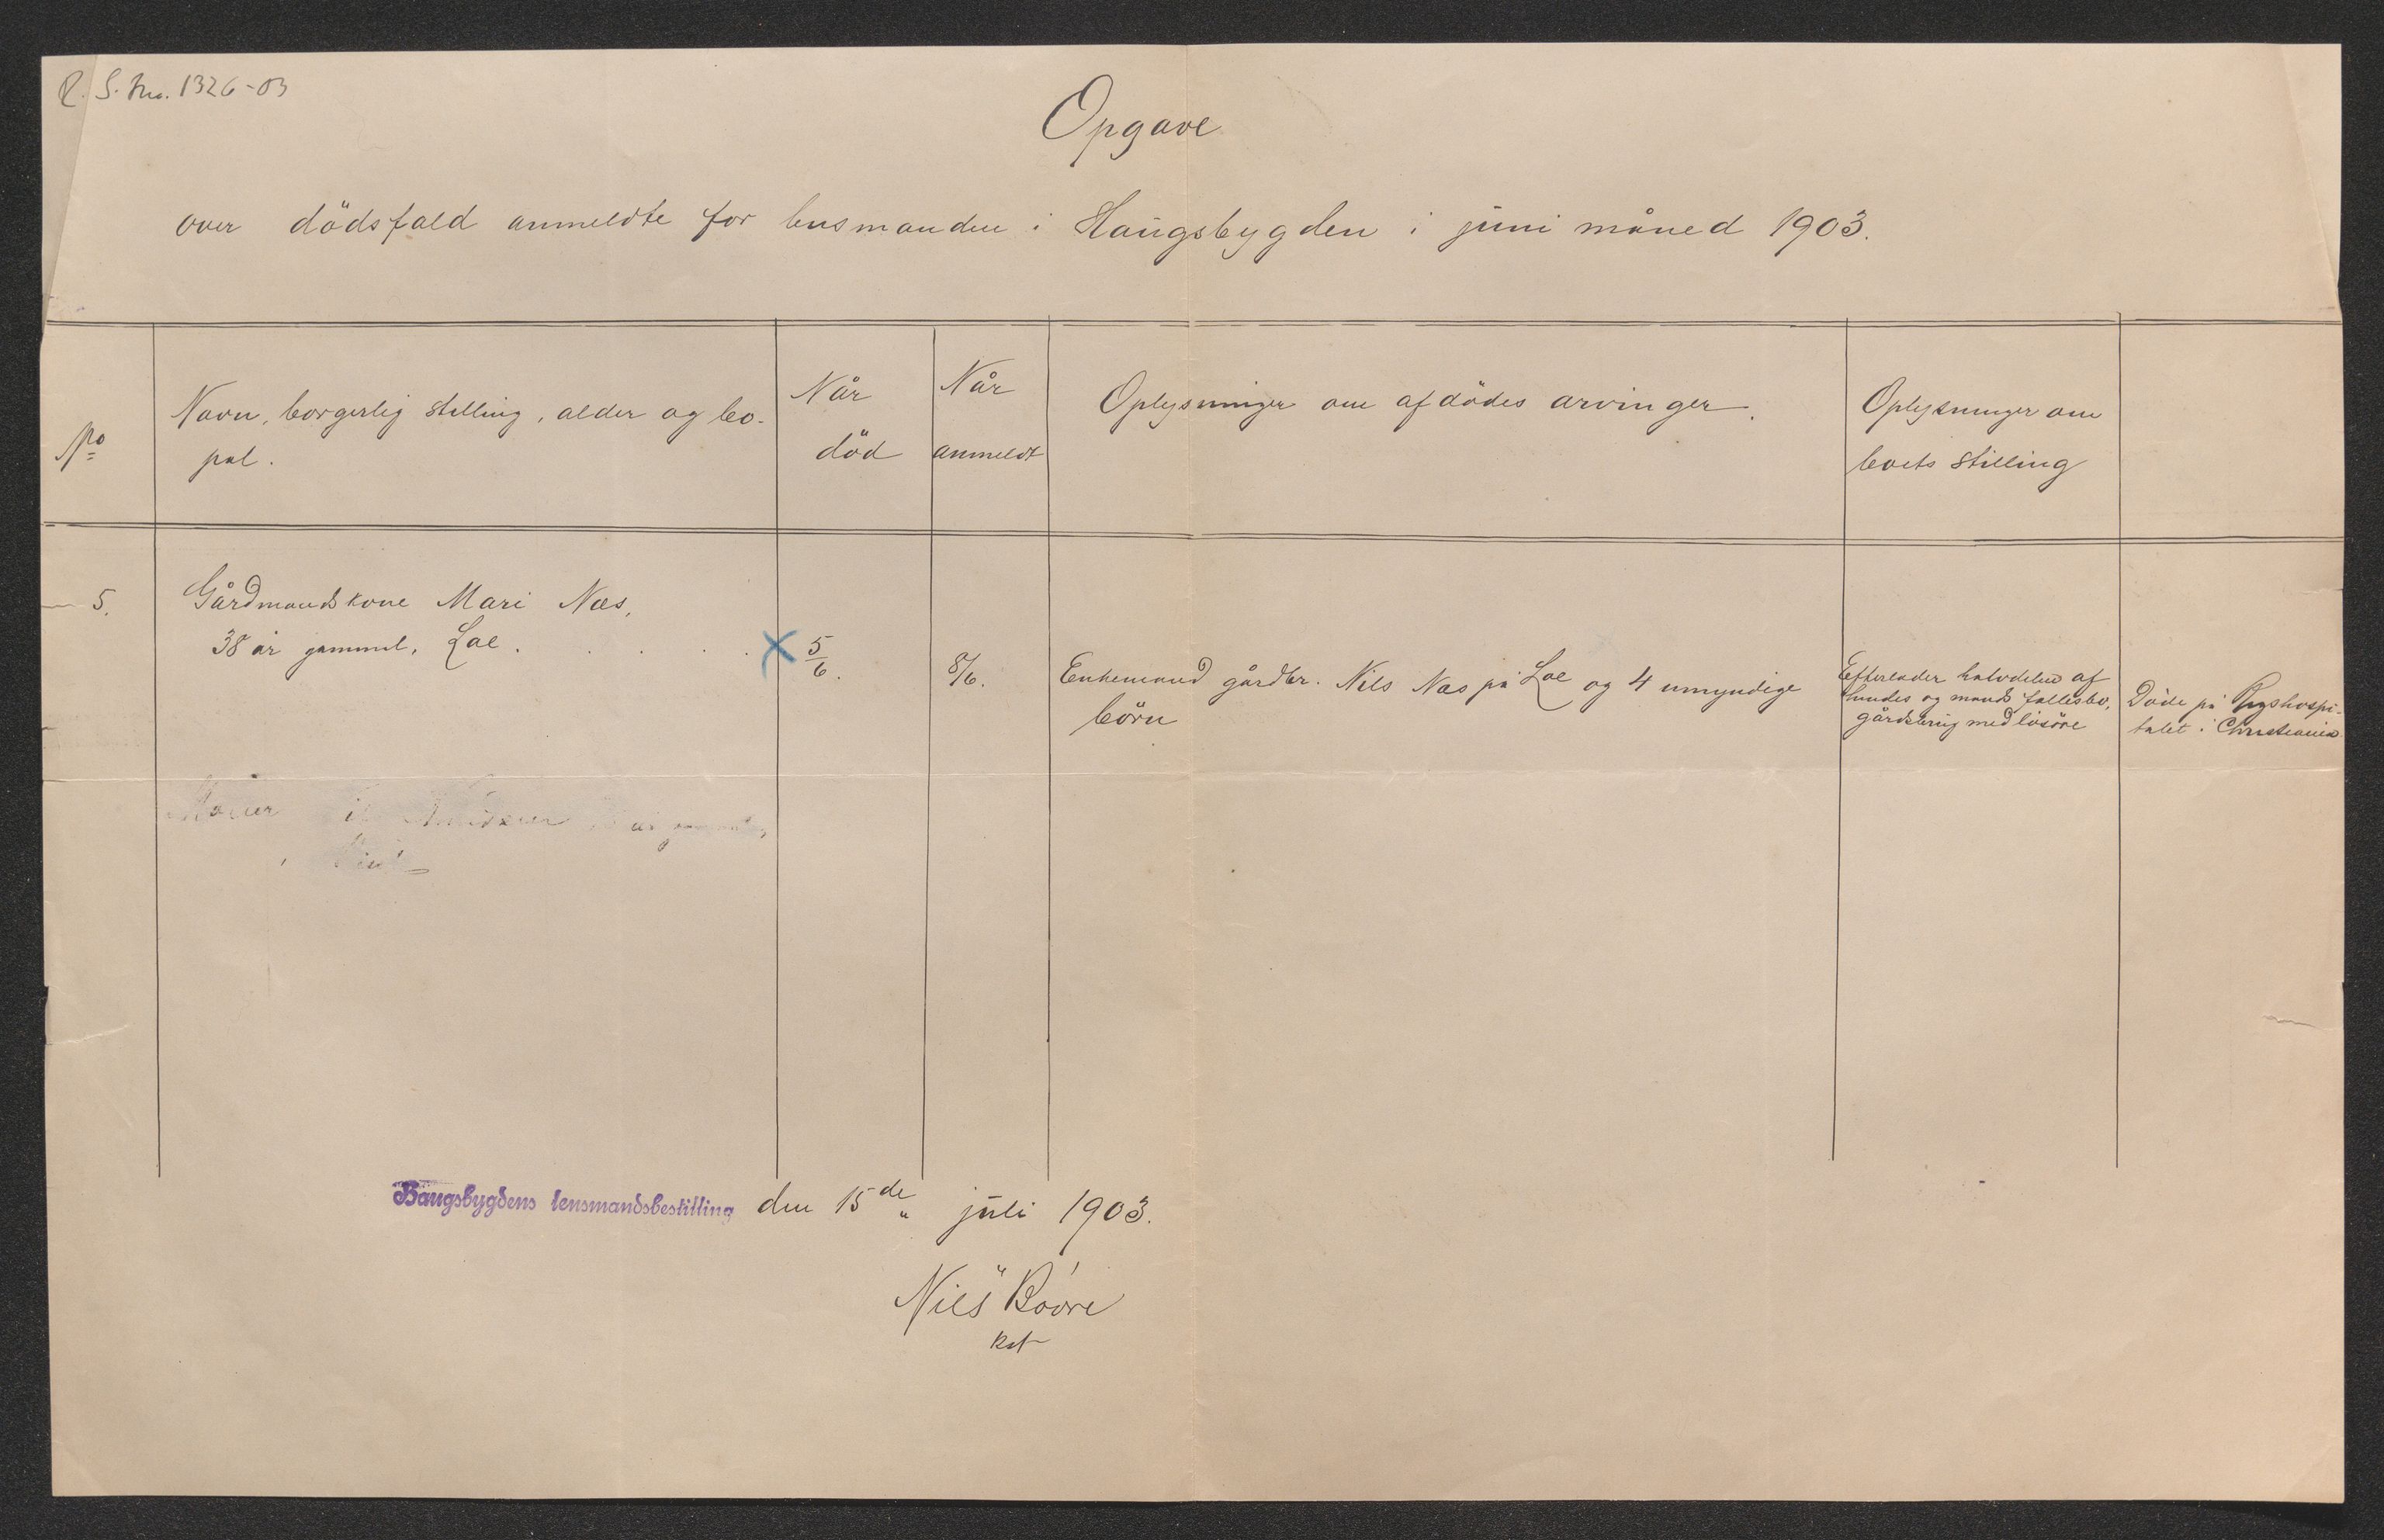 R. S. No. 1326-03
Opgave
over dödsfald anmeldte for lensmanden i Haugsbygden i juni måned 1903.
No
Navn, borgerlig stilling, alder og bo-
pæl.
Når
död
Når
anmeldt
Oplysninger om afdödes arvinger.
Oplysninger om
boets stilling
5.
Gårdmandskone Mari Næs,
38 år gammel, Loe.
5/6.
8/6.
Enkemand gårdbr. Nils Næs på Loe og 4 umyndige
börn
Efterlader halvdelen af
hendes og mands fællesbo,
gårdsbrug med lösöre
Döde på Rigshospi-
talet i Christiania
Haugsbygdens lensmandsbestilling den 15de juli 1903.
Nils Bövre
kst